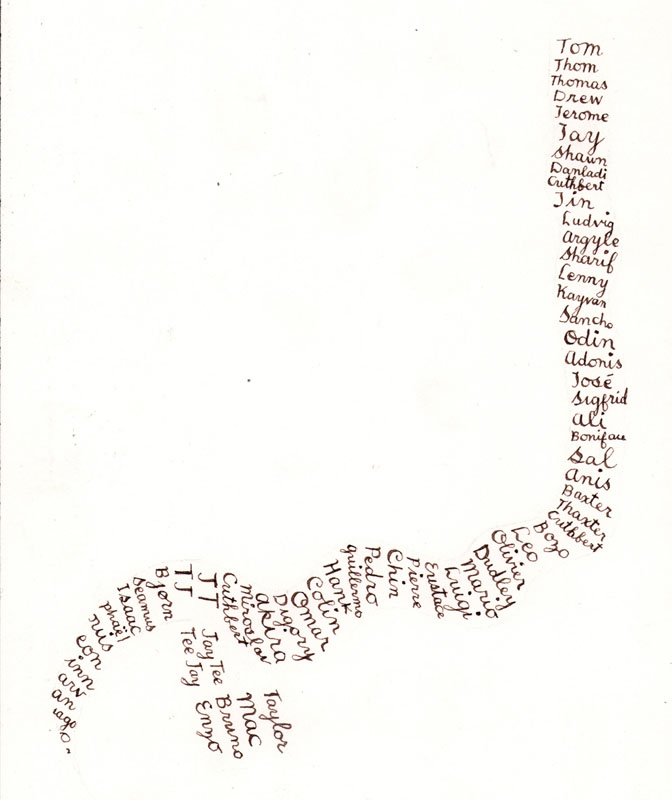 Tom
Thom
Thomas
Drew
Jerome
Jay
Shaun
Danladi
Cuthbert
Jin
Ludvig
Argyle
Sharif
Lenny
Kayvan
Sancho
Odin
Adonis
José
Sigfrid
Ali
Boniface
Sal
Anis
Baxter
Thaxter
Cuthbert
Bozo
Leo
Olivier
Dudley
Mario
Luigi
Eustace
Pierre
Chin
Pedro
guillermo
Hank
Colin
Omar
Digory
Akira
Miroslav
Cuthbert
JT
TJ
Jay Tee
Tee Jay
Taylor
Mac
Bruno
Enzo
Bjørn
Seamus
Isaac
phaël
nus
eon
inn
arv
an
iago